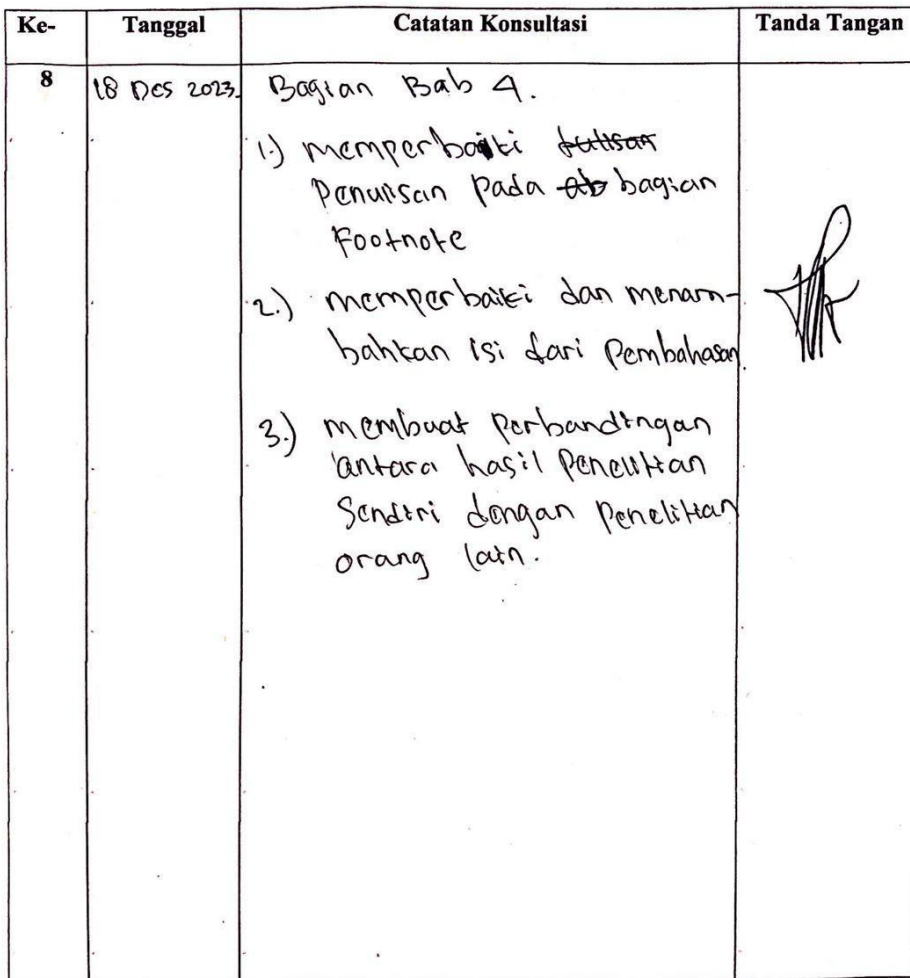 Ke- Tanggal Catatan Konsultasi Tanda Tangan
8 18 Des 2023. Bagian Bab 4.
1.) memperbaiki tulisan
Penulisan pada ab bagian
Footnote
2.) memperbaiki dan menam-
bahkan isi dari Pembahasan.
3.) membuat perbandingan
antara hasil Penelitian
Sendiri dengan Penelitian
orang lain.